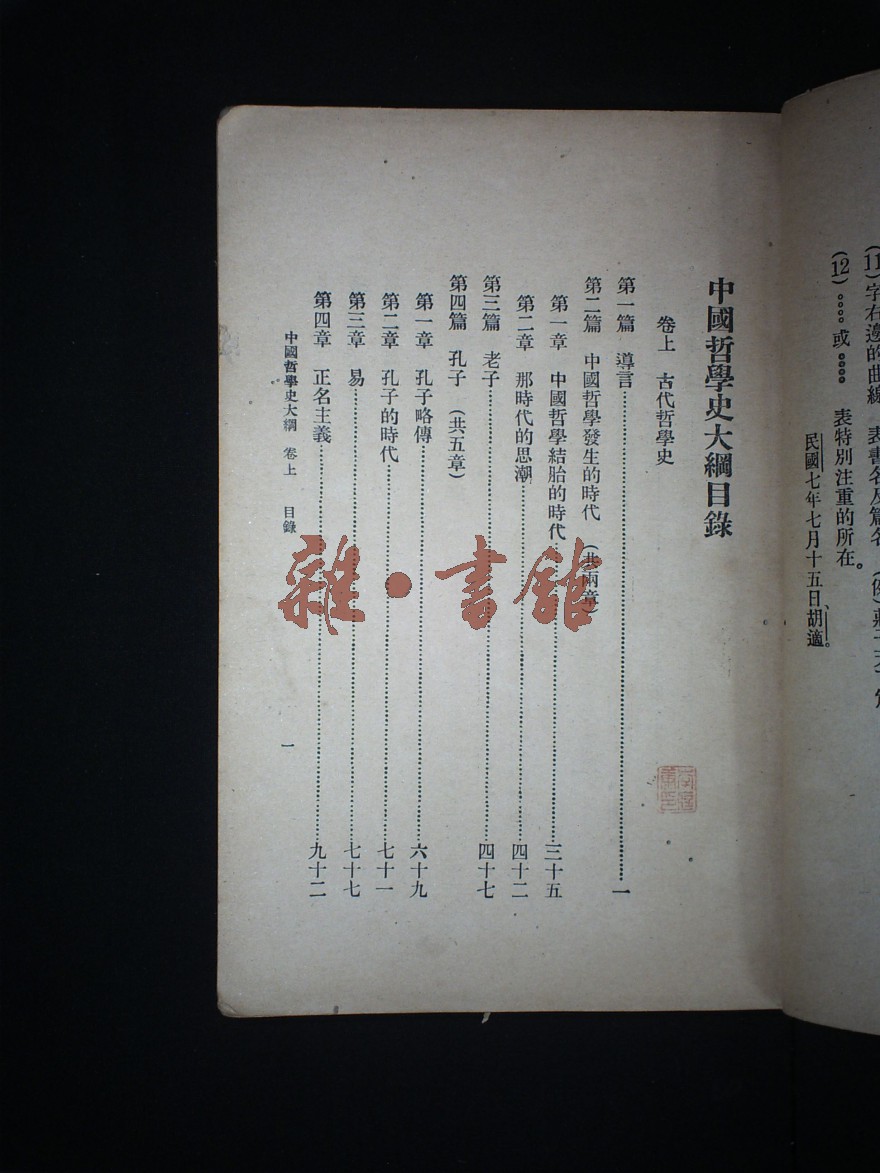 (11)字右邊的曲線 表書名及篇名
(12)。。。。或◦◦◦◦ 表特別注重的所在。
民國七年七月十五日、胡適。
中國哲學史大綱目錄
卷上 古代哲學史
第一篇 導言……一
第二篇 中國哲學發生的時代 (共兩章)
第一章 中國哲學結胎的時代……三十五
第二章 那時代的思潮……四十二
第三篇 老子……四十七
第四篇 孔子 (共五章)
第一章 孔子略傳……六十九
第二章 孔子的時代……七十一
第三章 易……七十七
第四章 正名主義……九十二
中國哲學史大綱 卷上 目錄 一
雜·書館